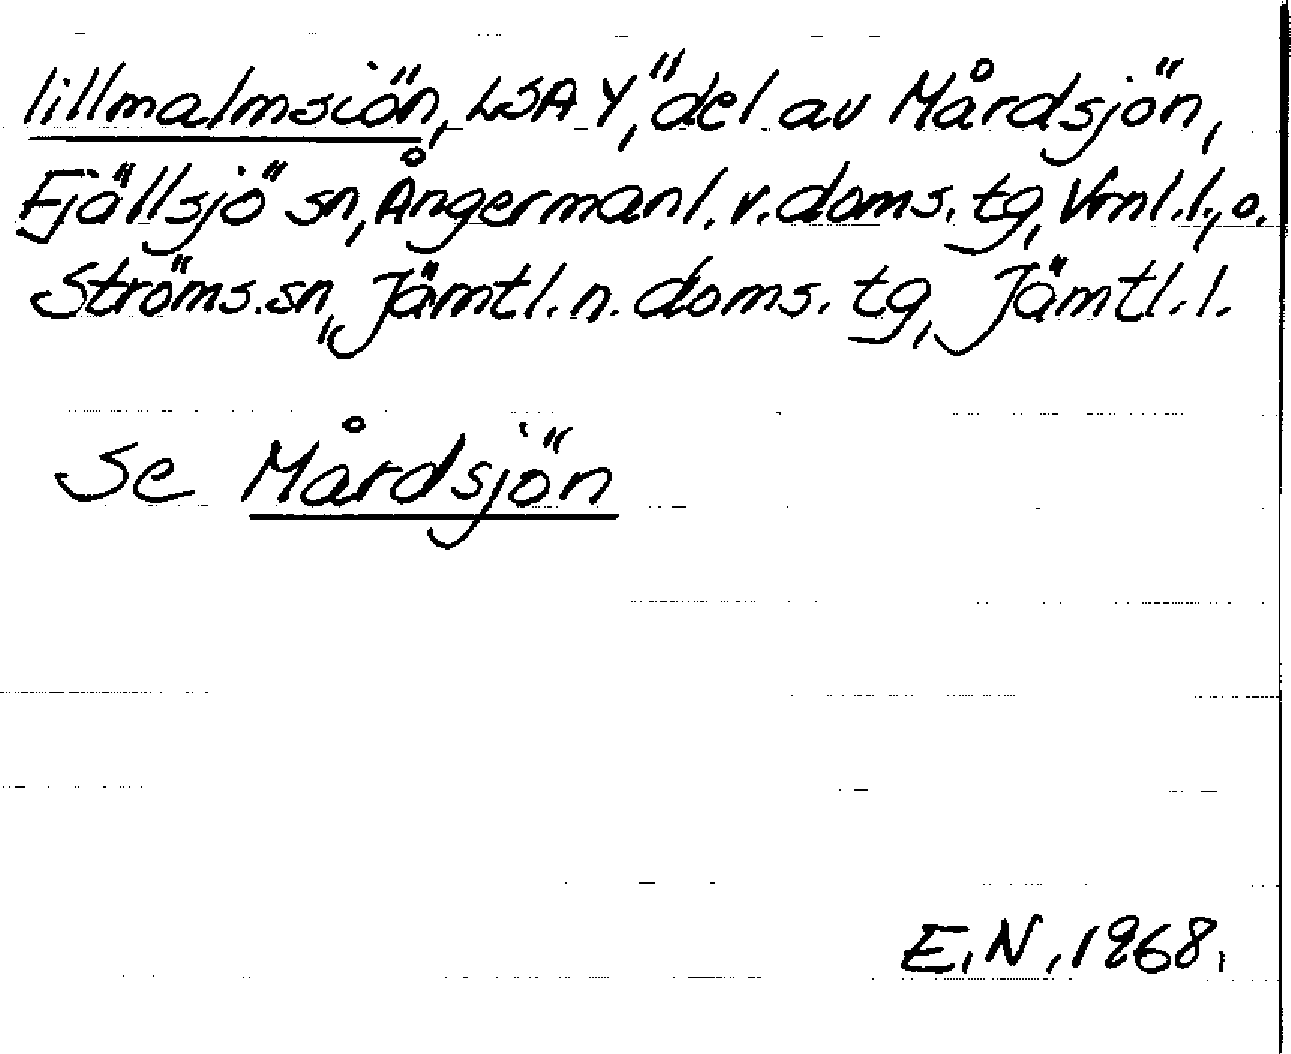 lillmalmsiön, LSA Y, "del av Mårdsjön,
Fjällsjö sn, Ångermanl. v. doms. tg, Vrnl. l., o.
Ströms. sn, Jämtl. n. doms. tg, Jämtl. l.
Se Mårdsjön
E. N. 1968.